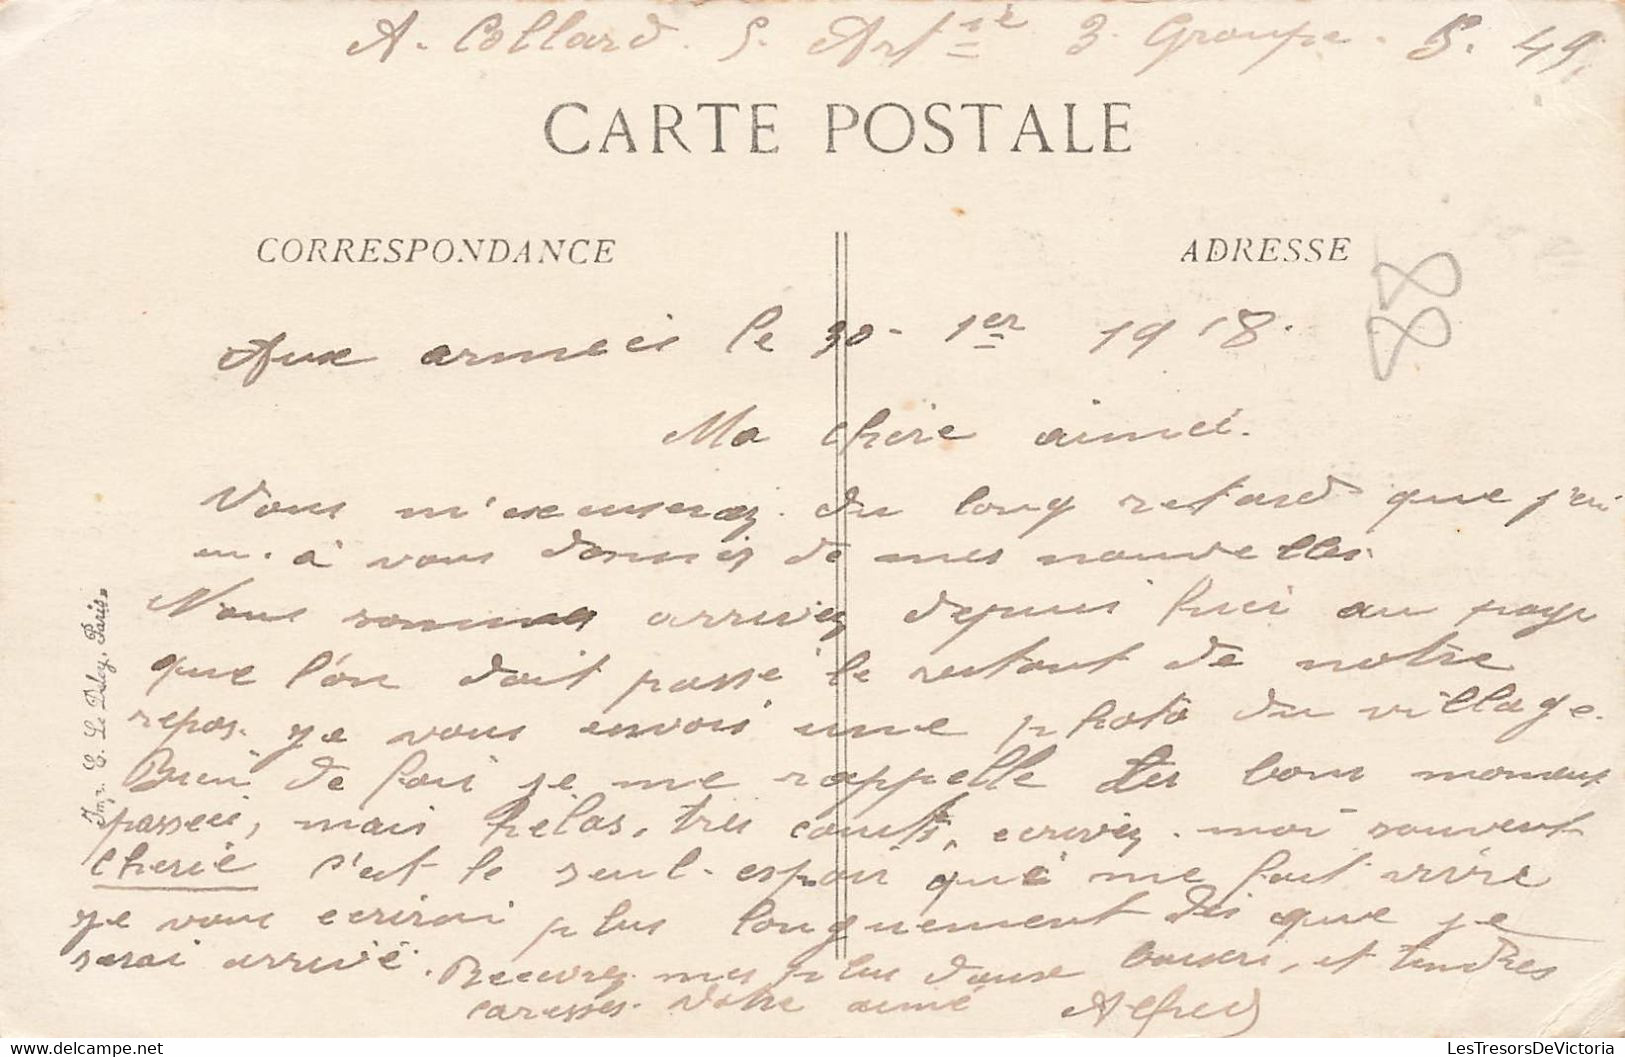 A. Collard. 5. Art^ie 3. Groupe. 49,
CARTE POSTALE
CORRESPONDANCE
ADRESSE
88
Aux armeés le 30 - 1er 1918.
Ma chère aimeé.
Vous m'excuserez du long retard que j'ai
eu. à vous donner de mes nouvelles.
Nous sommes arrivez depuis hier au pays
que l'on doit passé le restant de notre
repos. je vous envois une photo du village.
Bien de fois je me rappelle les bons moments
passeés, mais helas, tres courts, ecrivez. moi souvent
cherie c'est le seul espoir qui me fait vivre
je vous ecrirai plus longuement dès que je
serai arrivé. Recevez mes plus doux baisers, et tendres
caresses. Votre aimé Alfred
Imp. E. Le Deley, Paris.
LesTresorsDeVictoria